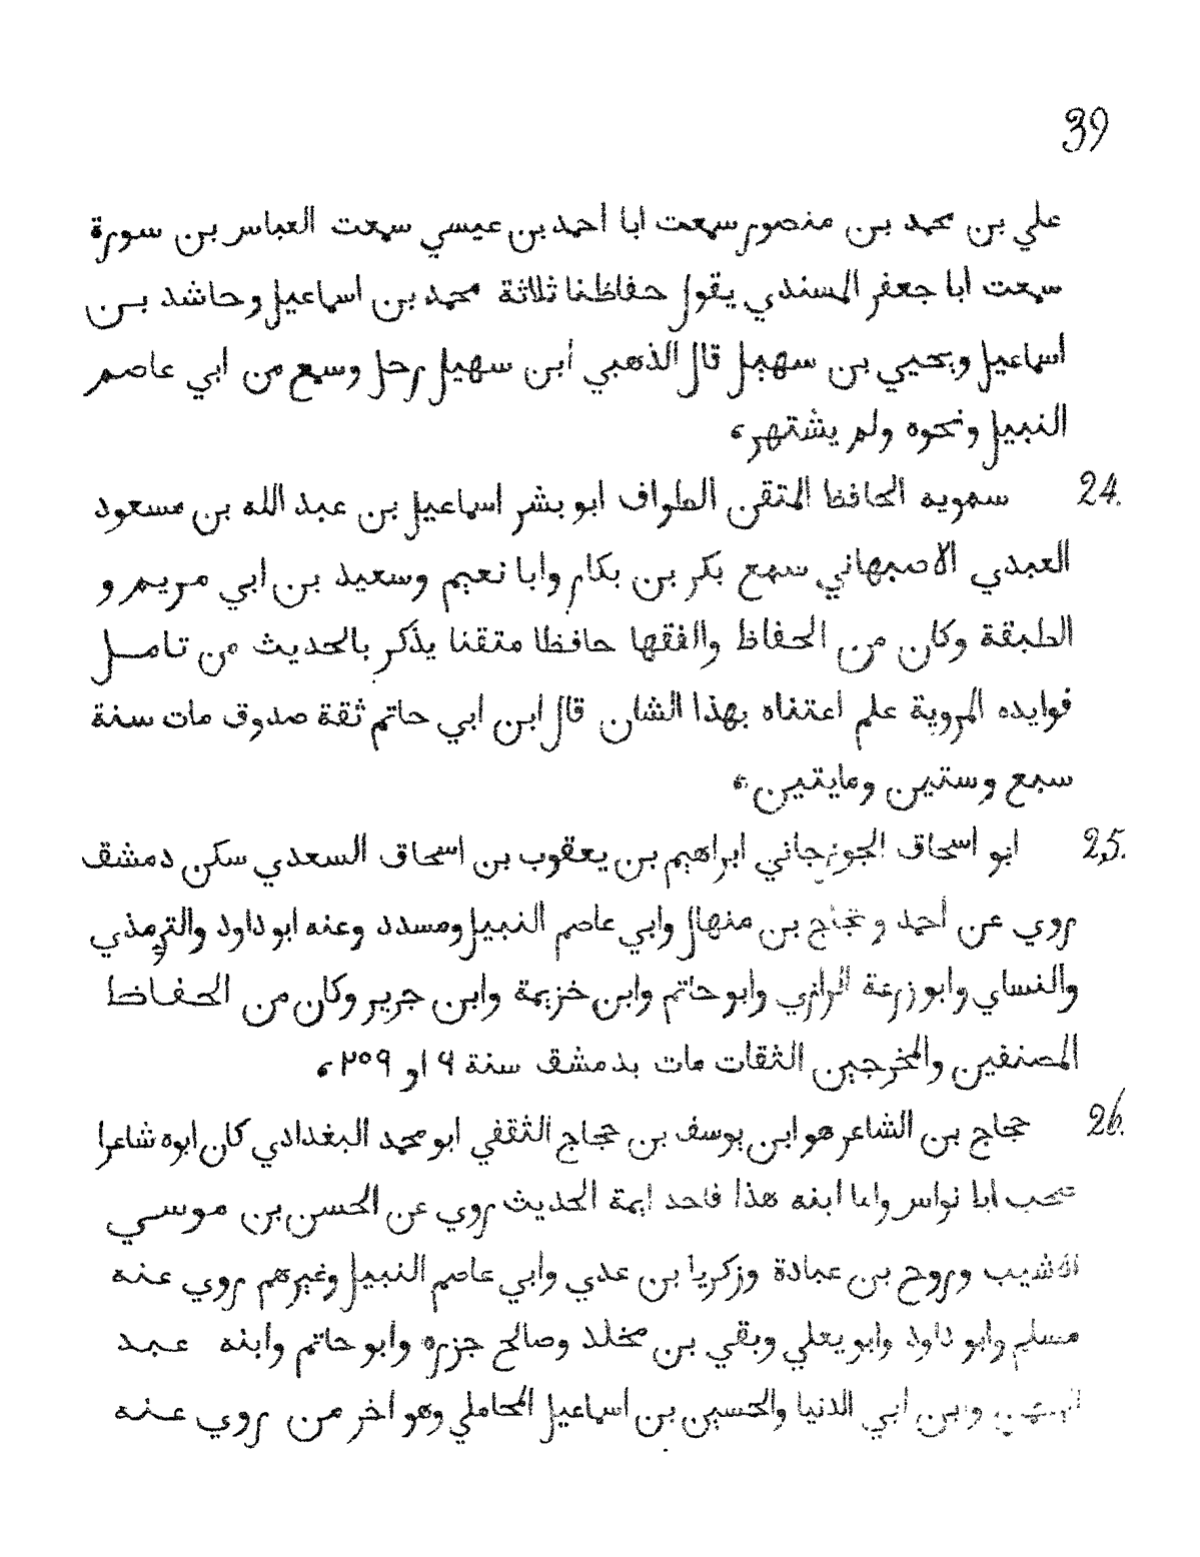 39
علي بن محمد بن منصور سمعت ابا احمد بن عيسي سمعت العباس بن سورة
سمعت ابا جعفر المسندي يقول حفاظنا ثلاثة محمد بن اسماعيل وحاشد بن
اسماعيل ويحيي بن سهيل قال الذهبي ابن سهيل رحل وسمع من ابي عاصم
النبيل ونحوه ولم يشتهر،
24. سمويه الحافظ المتقن الطواف ابو بشر اسماعيل بن عبد الله بن مسعود
العبدي الاصبهاني سمع بكر بن بكار وابا نعيم وسعيد بن ابي مريم و
الطبقة وكان من الحفاظ والفقها حافظا متقنا يذكر بالحديث من تامل
فوايده المروية علم اعتناه بهذا الشان قال ابن ابي حاتم ثقة صدوق مات سنة
سبع وستين ومايتين،
25. ابو اسحاق الجوزجاني ابراهيم بن يعقوب بن اسحاق السعدي سكن دمشق
روي عن احمد وحجاج بن منهال وابي عاصم النبيل ومسدد وعنه ابو داود والترمذي
والنساي وابو زرعة الرازي وابو حاتم وابن خزيمة وابن جرير وكان من الحفاظ
المصنفين والمخرجين الثقات مات بدمشق سنة ٦ او ٢٥٩،
26. حجاج بن الشاعر هو ابن يوسف بن حجاج الثقفي ابو محمد البغدادي كان ابوه شاعرا
صحب ابا نواس واما ابنه هذا فاحد ايمة الحديث روي عن الحسن بن موسي
الاشيب وروح بن عبادة وزكريا بن عدي وابي عاصم النبيل وغيرهم روي عنه
مسلم وابو داود وابو يعلي وبقي بن مخلد وصالح جزره وابو حاتم وابنه عبد
وابن ابي الدنيا والحسين بن اسماعيل المحاملي وهو اخر من روي عنه